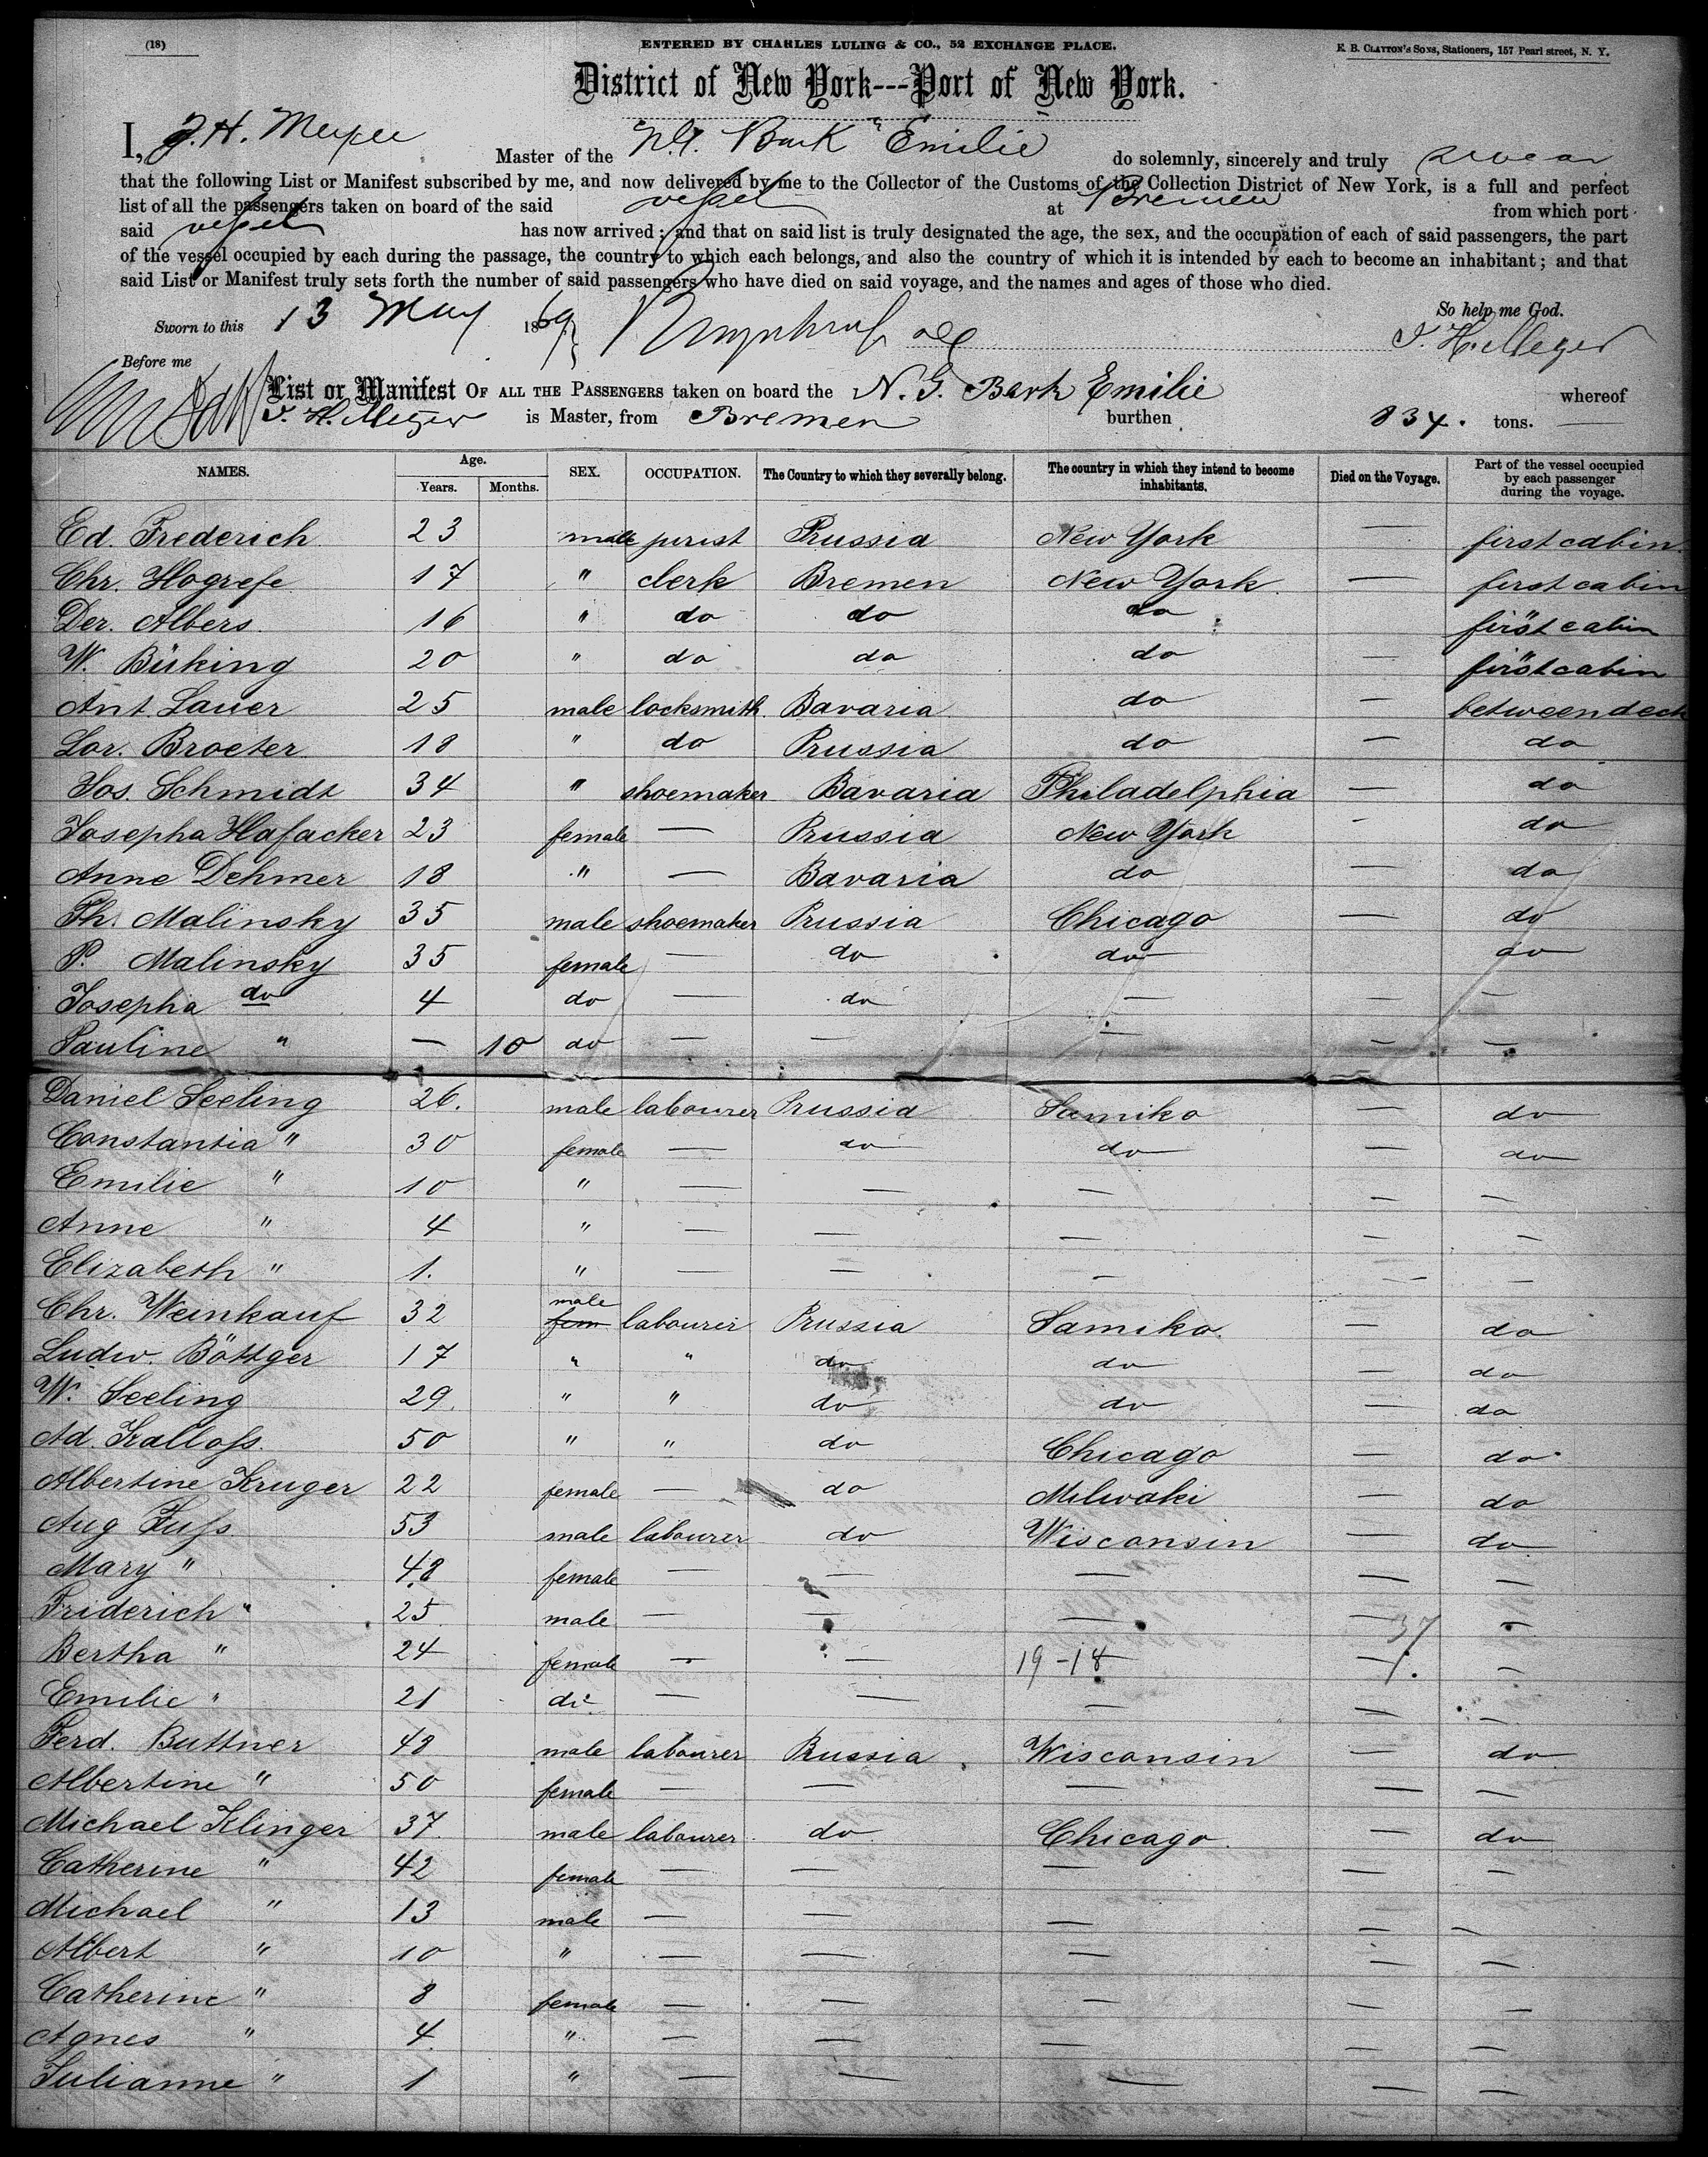 (18)
ENTERED BY CHARLES LULING & CO., 52 EXCHANGE PLACE.
E. B. CLAYTON'S SONS, Stationers, 157 Pearl street, N. Y.
District of New York---Port of New York.
I, J. H. Meyer Master of the N.G. Bark "Emilie do solemnly, sincerely and truly swear
that the following List or Manifest subscribed by me, and now delivered by me to the Collector of the Customs of the Collection District of New York, is a full and perfect
list of all the passengers taken on board of the said vessel at Bremen from which port
said vessel has now arrived; and that on said list is truly designated the age, the sex, and the occupation of each of said passengers, the part
of the vessel occupied by each during the passage, the country to which each belongs, and also the country of which it is intended by each to become an inhabitant; and that
said List or Manifest truly sets forth the number of said passengers who have died on said voyage, and the names and ages of those who died.
So help me God.
Sworn to this 13 May 1869
J. H. Meyer
Before me
List or Manifest OF ALL THE PASSENGERS taken on board the N. G. Bark Emilie whereof
J. H. Meyer is Master, from Bremen burthen 834. tons.
NAMES. Age. Years. Months. SEX. OCCUPATION. The Country to which they severally belong. The country in which they intend to become inhabitants. Died on the Voyage. Part of the vessel occupied by each passenger during the voyage.
Ed. Frederich 23 male jurist Prussia New York — first cabin
Chr. Hogrefe 17 " clerk Bremen New York — first cabin
Der. Albers 16 " do do do first cabin
W. Büking 20 " do do do — first cabin
Ant. Lauer 25 male locksmith Bavaria do — between deck
Lor. Broeter 18 " do Prussia do — do
Jos. Schmidt 34 " shoemaker Bavaria Philadelphia — do
Josepha Hafacker 23 female — Prussia New York - do
Anne Dehmer 18 " — Bavaria do — do
Th. Malinsky 35 male shoemaker Prussia Chicago — do
P. Malinsky 35 female — do do do
Josepha do 4 do — do — — —
Pauline " — 10 do — — — — —
Daniel Seeling 26. male labourer Prussia Samiko — do
Constantia " 30 female — do do — do
Emilie " 10 " — — — — —
Anne " 4 " — — — — —
Elizabeth " 1. " — — — — —
Chr. Weinkauf 32 male fem labourer Prussia Samiko. — do
Ludw. Böttger 17 " " do do — do
W. Seeling 29. " " do do — do
Ad. 50 " " do Chicago — do
Albertine Kruger 22 female — do Milwaki — do
Aug Fuss 53 male labourer do Wisconsin — do
Mary " 48 female — — — — —
Friderich " 25 male — — — — 37 —
Bertha " 24 female — — 19-18 — 1. —
Emilie " 21 do — — — — —
Ferd. Buttner 48 male labourer Prussia Wisconsin — do
Albertine " 50 female — — — — —
Michael Klinger 37. male labourer do Chicago. — do
Catherine " 42 female — — — — —
Michael " 13 male — — — — —
Albert " 10 " — — — — —
Catherine " 8 female — — — — —
Agnes " 4 " — — — — —
Julianne " 1 " — — — — —